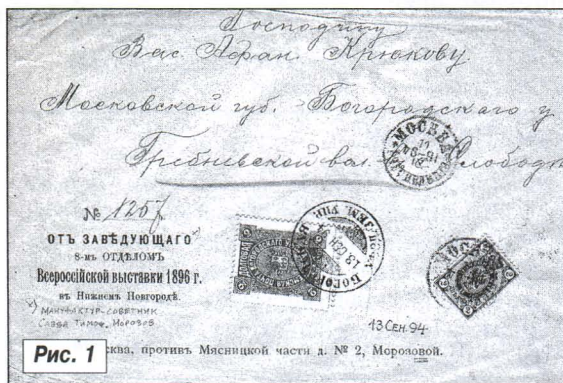 Господину
Вас. Афан. Крюкову
Московской губ. Богородского у
Гребневской вол. Слобода
МОСКВА
№ 1257
ОТЪ ЗАВѢДУЮЩАГО
8-мъ ОТДѢЛОМЪ
Всероссійской выставки 1896 г.
въ Нижнемъ Новгородѣ.
х) МАНУФАКТУР-СОВЕТНИК
САВВА ТИМОФ. МОРОЗОВ
13 СЕН. 94
сква, противъ Мясницкой части д. № 2, Морозовой.
Рис. 1